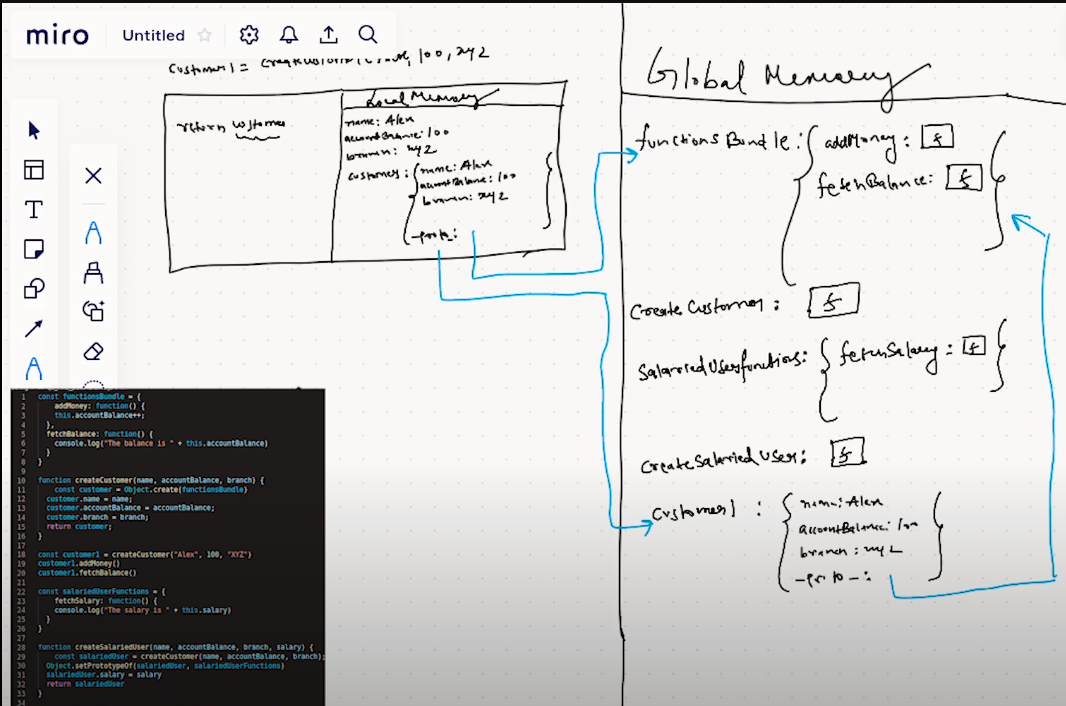 miro
Untitled
Customer1 = createCustomer( 100, xyz
Local Memory
return customer
name: Alex
accountBalance: 100
branch: xyz
customer: { name: Alex
accountBalance: 100
branch: xyz
-proto-:
}
Global Memory
functionsBundle: { addMoney: f
fetchBalance: f
}
Create Customer: f
SalariedUserfunctions: { fetchSalary: f }
Create Salaried User: f
Customer1 : { name: Alex
accountBalance: 100
branch: xyz
-proto-:
}
1 const functionsBundle = {
2 addMoney: function() {
3 this.accountBalance++;
4 },
5 fetchBalance: function() {
6 console.log("The balance is " + this.accountBalance)
7 }
8 }
9
10 function createCustomer(name, accountBalance, branch) {
11 const customer = Object.create(functionsBundle)
12 customer.name = name;
13 customer.accountBalance = accountBalance;
14 customer.branch = branch;
15 return customer;
16 }
17
18 const customer1 = createCustomer("Alex", 100, "XYZ")
19 customer1.addMoney()
20 customer1.fetchBalance()
21
22 const salariedUserFunctions = {
23 fetchSalary: function() {
24 console.log("The salary is " + this.salary)
25 }
26 }
27
28 function createSalariedUser(name, accountBalance, branch, salary) {
29 const salariedUser = createCustomer(name, accountBalance, branch);
30 Object.setPrototypeOf(salariedUser, salariedUserFunctions)
31 salariedUser.salary = salary
32 return salariedUser
33 }
34